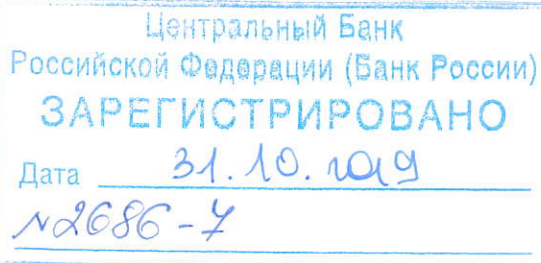 Центральный Банк
Российской Федерации (Банк России)
ЗАРЕГИСТРИРОВАНО
Дата 31.10.2019
№2686-7